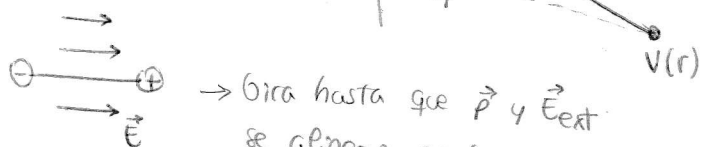 V(r)
⊖ ⊕ → Gira hasta que p⃗ y E⃗ext
E⃗ se